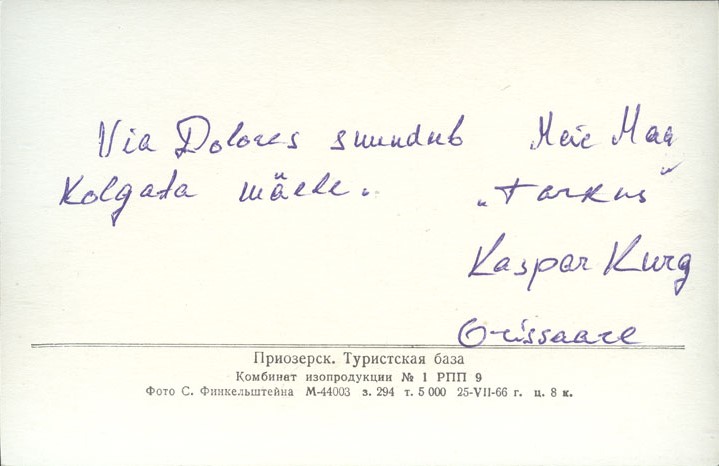 Via Dolores suundub Meie Maa
Kolgata mäele.
„Tarkus"
Kaspar Kurg
Orissaare
Приозерск. Туристская база
Комбинет изопродукции № 1 РПП 9
Фото С. Финкельштейна М-44003 з. 294 т. 5 000 25-VII-66 г. ц. 8 к.